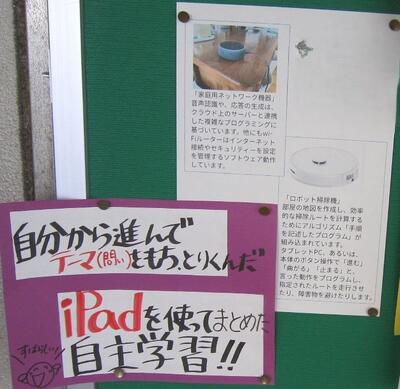 「家庭用ネットワーク機器」
音声認識や、応答の生成は、
クラウド上のサーバーと連携
した複雑なプログラミングに
基づいています。他にもwi-
Fiルーターはインターネット
接続やセキュリティーを設定
を管理するソフトウェア動作
しています。
「ロボット掃除機」
部屋の地図を作成し、効率
的な掃除ルートを計算する
ためにアルゴリズム「手順
を記述したプログラム」が
組み込まれています。
タブレットPC、あるいは、
本体のボタン操作で「進む」
「曲がる」「止まる」と、
言った動作をプログラムし、
指定されたルートを走行させ
たり、障害物を避けたりします。
自分から進んで
テーマ(問い)をもち、とりくんだ
iPadを使ってまとめた
自主学習!!
すばらしい!